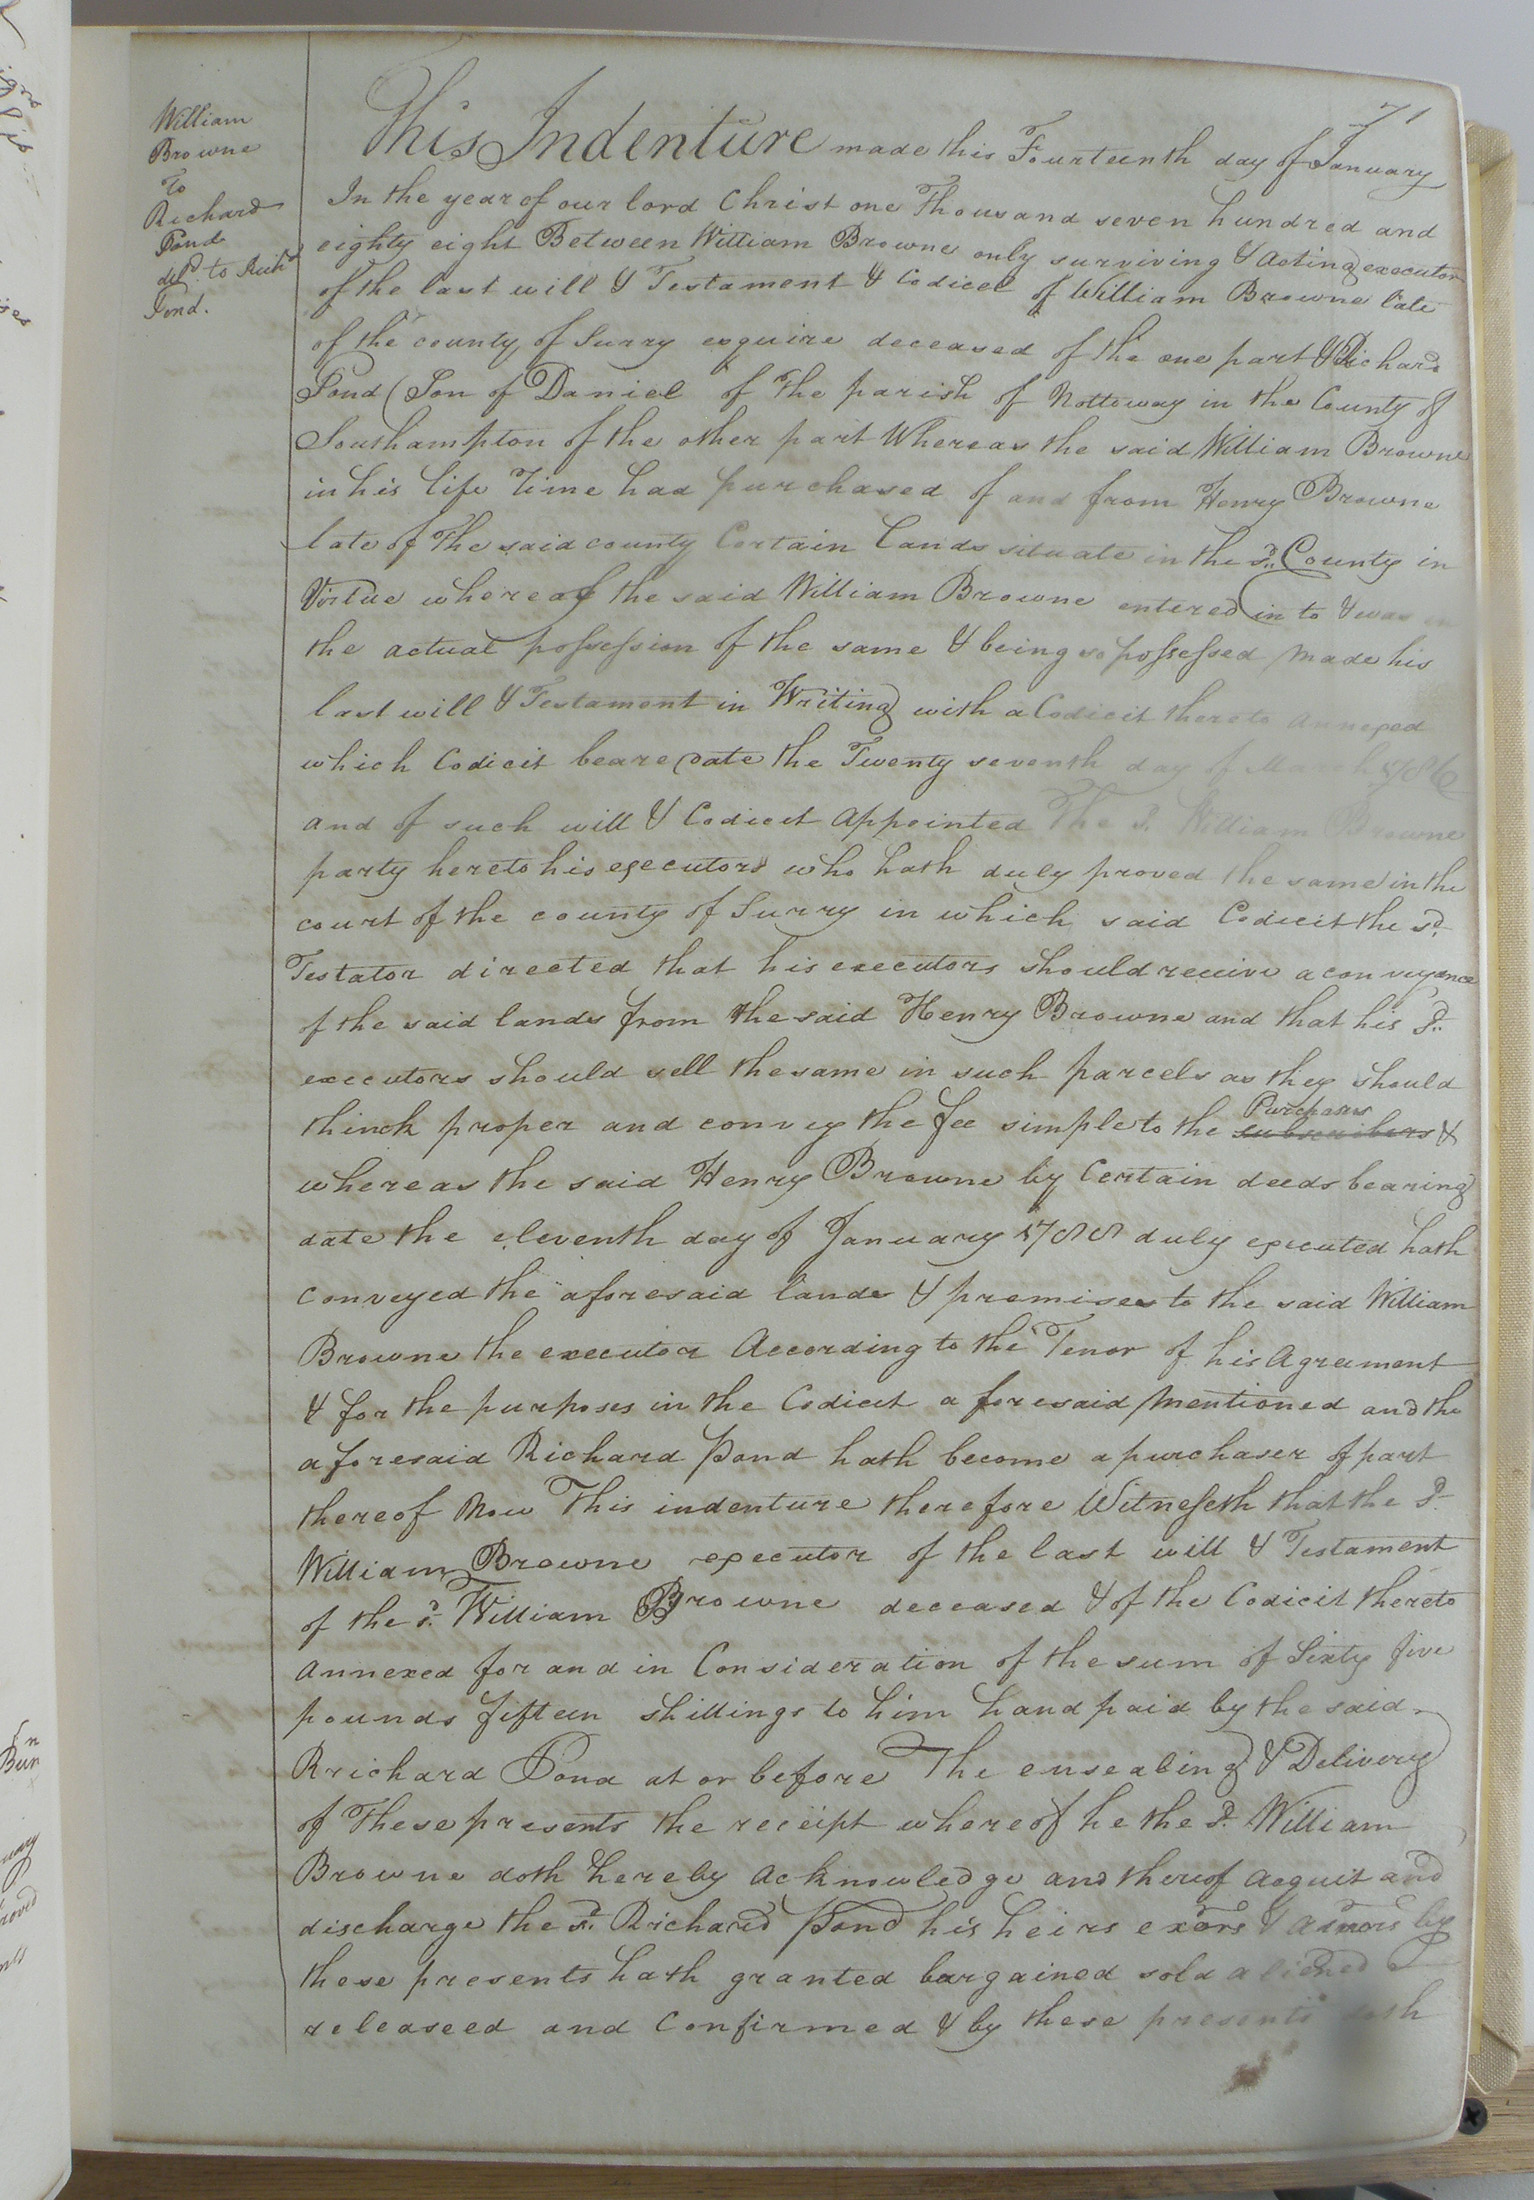 71
William
Browne
To
Richard
Pond
deld. to Richd
Pond.
This Indenture made this Fourteenth day of January
In the year of our lord Christ one Thousand seven hundred and
eighty eight Between William Browne only surviving & Acting executor
of the last will & Testament & Codicel of William Browne late
of the county of Surry esquire deceased of the one part & Richard
Pond (Son of Daniel of the parish of Nottoway in the County of
Southampton of the other part Whereas the said William Browne
in his life Time had purchased of and from Henry Browne
late of The said county Certain Lands situate in the sd. County in
Virtue whereof the said William Browne entered in to & was in
the actual possession of the same & being so possessed made his
last will & Testament in Writing with a Codicit thereto annexed
which Codicit beare date the Twenty seventh day of March 1786
and of such will & Codicit Appointed The Sd. William Browne
party hereto his executors who hath duly proved the same in the
court of the county of Surry in which said Codicit the sd.
Testator directed that his executors should receive a conveyance
of the said lands from the said Henry Browne and that his Sd.
executors should sell the same in such parcels as they should
thinck proper and convey the fee simple to the subscribers Purchasers &
whereas the said Henry Browne by Certain deeds bearing
date the eleventh day of January 1788 duly executed hath
conveyed the aforesaid lands & premises to the said William
Browne the executor According to the Tenor of his Agreement
& for the purposes in the Codicit a foresaid mentioned and the
aforesaid Richard Pond hath become a purchaser of part
thereof Now This indenture therefore Witnesseth that the Sd.
William Browne executor of the last will & Testament
of the sd. William Browne deceased & of the Codicit thereto
Annexed for and in Consideration of the sum of Sixty five
pounds fifteen shillings to him hand paid by the said
Rrichard Pond at or before The ensealing & Delivery
of These presents the receipt whereof he the Sd. William
Browne doth hereby Acknowledge and thereof Acquit and
discharge the sd. Richard Pond his heirs exors & admors by
these presents hath granted bargained sold aliened
releaseed and Confirmed & by these presents doth